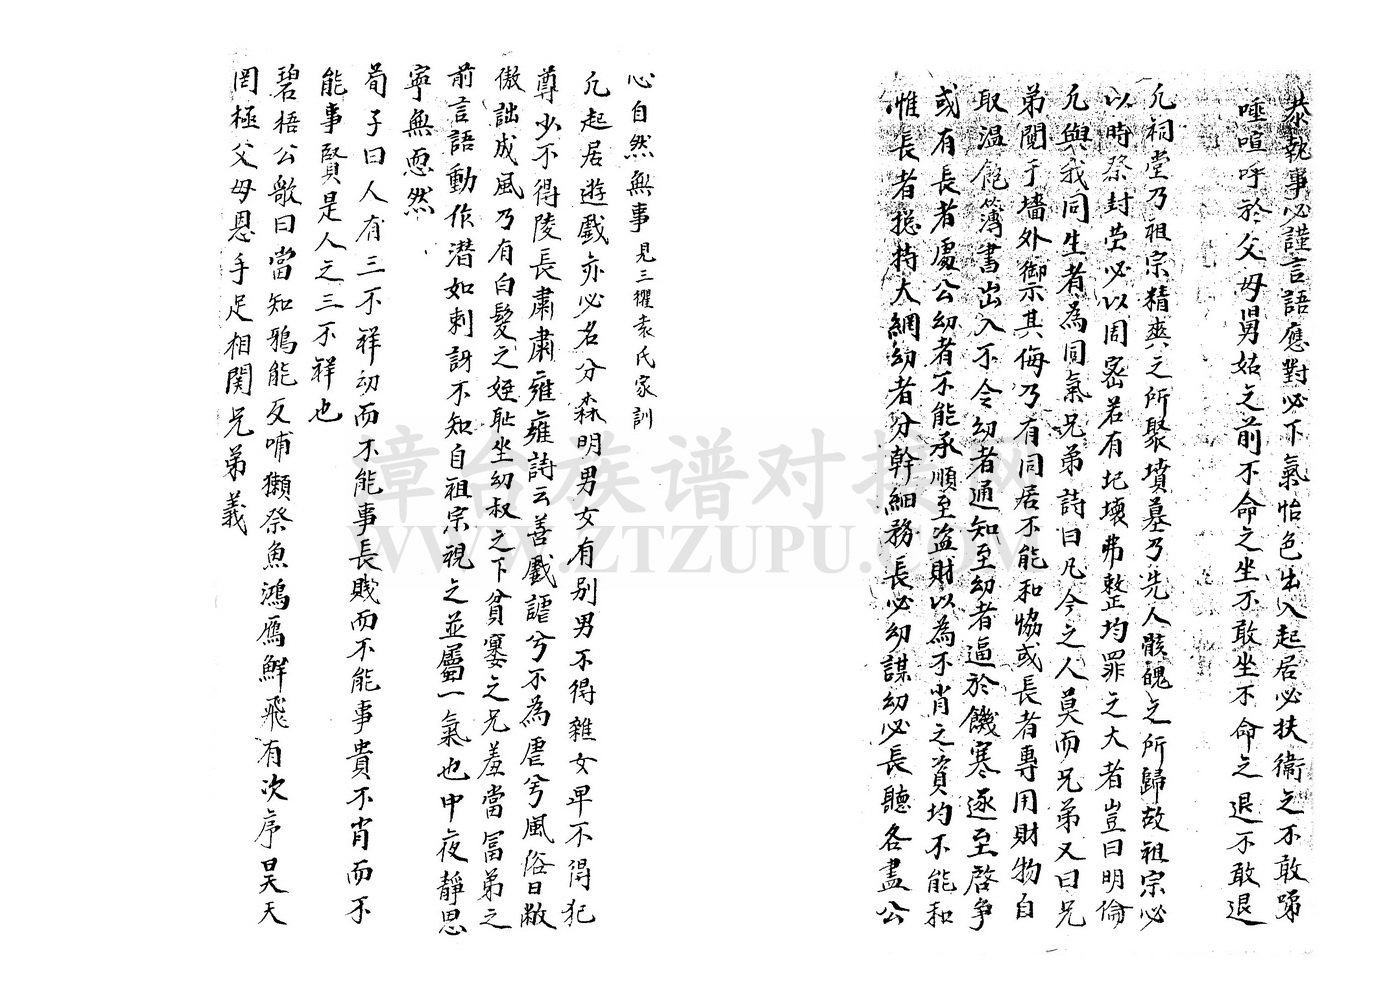 恭執事必謹言語應對必下氣怡色出入起居必扶衞之不敢嚏
唾喧呼於父母舅姑之前不命之坐不敢坐不命之退不敢退
凢祠堂乃祖宗精爽之所聚墳墓乃先人骸魄之所歸故祖宗必
以時祭封塋必以周密若有圮壞弗整均罪之大者豈曰明倫
凢與我同生者為同氣兄弟詩曰凡今之人莫而兄弟又曰兄
弟鬩于墻外御示其侮乃有同居不能和恊或長者專用財物自
取温飽簿書出入不令幼者通知至幼者逼於饑寒逐至啓争
或有長者處公幼者不能承順至盜財以為不肖之資均不能和
惟長者捴持大綱幼者分幹細務長必幼謀幼必長聽各盡公
心自然無事見三衢袁氏家訓
凢起居遊戲亦必名分森明男女有別男不得雜女卑不得犯
尊少不得陵長肅肅雍雍詩云善戲謔兮不為虐兮風俗日敝
傲詘成風乃有白髮之姪耻坐幼叔之下貧窶之兄羞當冨弟之
前言語動作潜如刺訝不知自祖宗視之並屬一氣也中夜靜思
寧無恧然
荀子曰人有三不祥幼而不能事長賤而不能事貴不肖而不
能事賢是人之三不祥也
碧梧公歌曰當知鴉能反哺獺祭魚鴻鴈鮮飛有次序昊天
罔極父母恩手足相関兄弟義
章台族谱对接网
WWW.ZTZUPU.COM